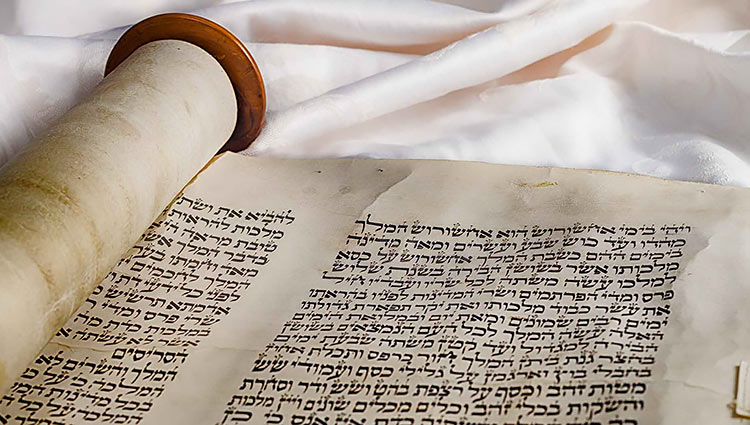 ויהי בימי אחשורוש הוא אחשורוש המלך
מהדו ועד כוש שבע ועשרים ומאה מדינה
בימים ההם כשבת המלך אחשורוש על כסא
מלכותו אשר בשושן הבירה בשנת שלוש
למלכו עשה משתה לכל שריו ועבדיו חיל
פרס ומדי הפרתמים ושרי המדינות לפניו בהראתו
את עשר כבוד מלכותו ואת יקר תפארת גדולתו
ימים רבים שמונים ומאת יום ובמלואת הימים
האלה עשה המלך לכל העם הנמצאים בשושן
הבירה למגדול ועד קטן משתה שבעת ימים
בחצר גנת ביתן המלך חור כרפס ותכלת אחוז
בחבלי בוץ וארגמן על גלילי כסף ועמודי שש
מטות זהב וכסף על רצפת בהט ושש ודר וסחרת
והשקות בכלי זהב וכלים מכלים שונים ויין מלכות
המלך והשתיה כדת אין אנס כי כן
להביא את ושתי
מלכות להראות
טובת מראה היא
בדבר המלך אשר
מאד וחמתו
המלך לחכמים
לפני כל
אדמתא תרשיש
פרס
מלכות כדת מה
אשר לא עשתה
הסריסים
המלך והשרים
המלך כי על כל
בכל מדינות
המלכה על